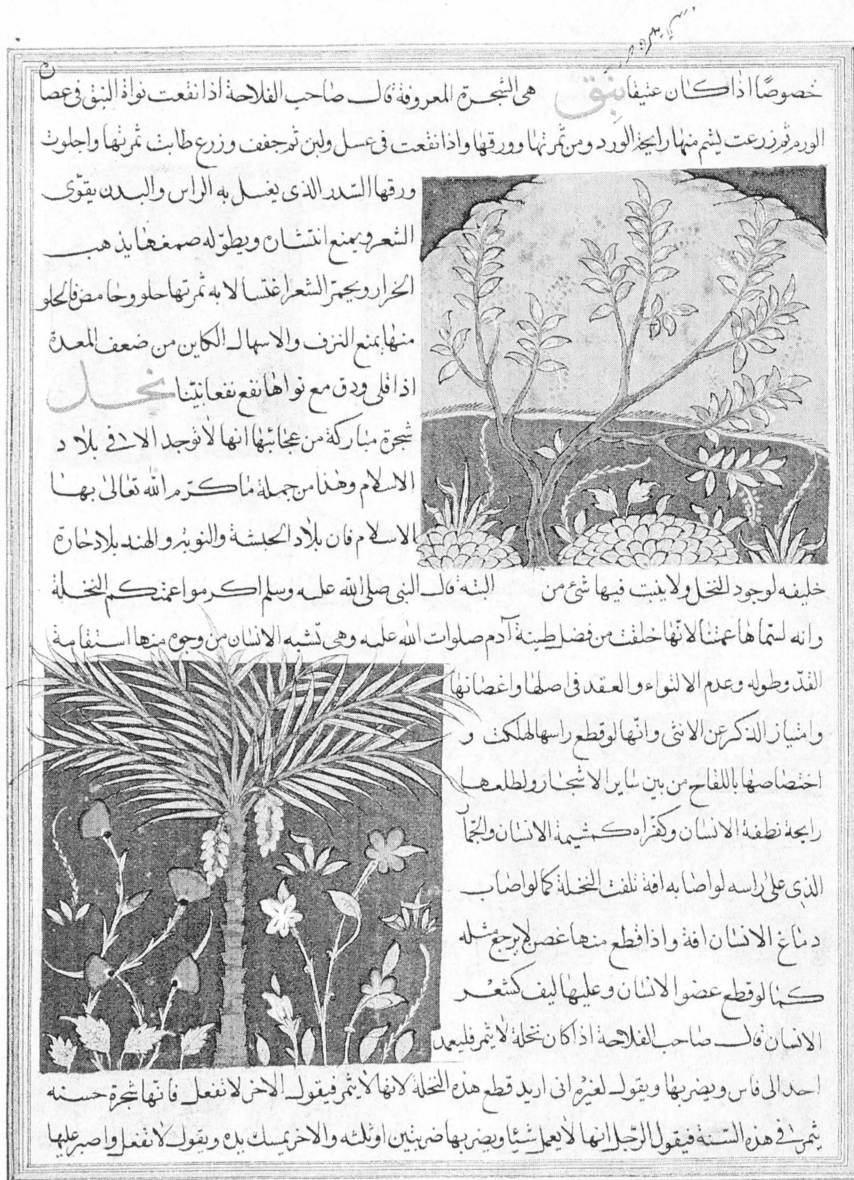 خصوصًا اذا كان عتيقا نبق هى الشجرة المعروفة قال صاحب الفلاحة اذا نقعت نواة النبق فى عصا
الورم ثم زرعت يشم منها رايحة الورد ومن ثمرتها وورقها واذا نقعت فى عسل ولبن ثم جفف وزرع طابت ثمرتها واحلوت
ورقها السدر الذى يغسل به الراس والبدن يقوّى
الشعر ويمنع انتشان ويطوّله صمغها يذهب
الحزاز ويحمّر الشعر اغتسالا به ثمرتها حلو وحامض فالحلو
منها يمنع النزف والاسهال الكاين من ضعف المعدة
اذا قلى ودق مع نواها نفع نفعا بيّنا نخل
شجرة مباركة من عجائبها انها لا توجد الا فى بلاد
الاسلام وهذا من جملة ما كرّم الله تعالى بها
الاسلام فان بلاد الحبشة والنوبة والهند بلاد حارة
خليقه لوجود النخل ولا ينبت فيها شئ من البتة قال النبى صلى الله عليه وسلم اكرموا عمتكم النخلة
وانه لسماها عمتنا لانها خلقت من فضل طينة آدم صلوات الله عليه وهى تشبه الانسان من وجوه منها استقامة
القدّ وطوله وعدم الالتواء والعقد فى اصلها واغصانها
وامتياز الذكر عن الانثى وانّها لو قطع راسها لهلكت و
اختصاصها باللقاح من بين ساير الاشجار ولطلعها
رايحة نطفة الانسان وكفراه كمشيمة الانسان والجمّا
الذى على راسه لو اصابه افة تلفت النخلة كما لو اصاب
دماغ الانسان افة واذا قطع منها غصن لا يرجع مثله
كما لو قطع عضو الانسان وعليها ليف كشعر
الانسان قال صاحب الفلاحة اذا كان نخلة لا يثمر فليعمد
احد الى فاس ويضربها ويقول لغيره انى اريد قطع هذه النخلة لانها لا يثمر فيقول الاخر لا تفعل فانّها شجرة حسنه
يثمر فى هذه السّنة فيقول الرّجل انها لا يعمل شيئا ويضربها ضربتين او ثلثه والاخر يمسك يده ويقول لا تفعل واصبر عليها